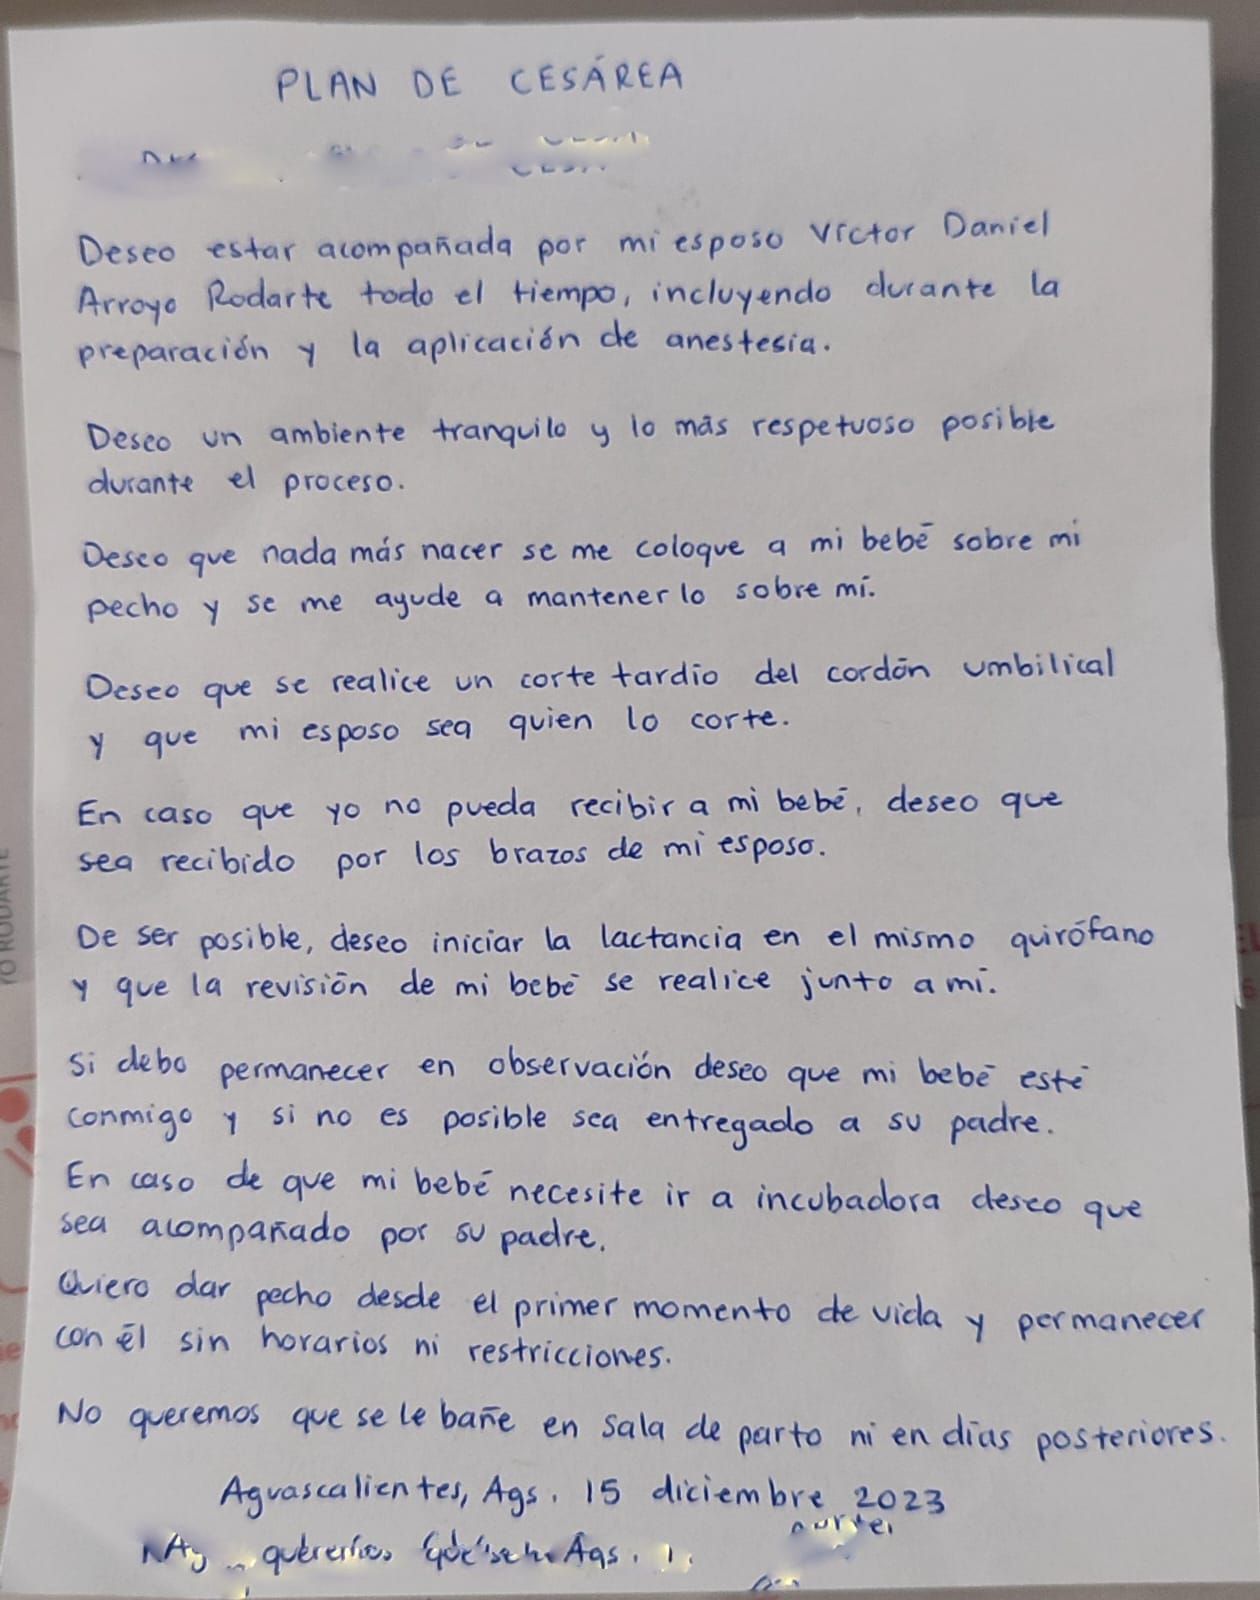 PLAN DE CESÁREA
Deseo estar acompañada por mi esposo Víctor Daniel
Arroyo Rodarte todo el tiempo, incluyendo durante la
preparación y la aplicación de anestesia.
Deseo un ambiente tranquilo y lo más respetuoso posible
durante el proceso.
Deseo que nada más nacer se me coloque a mi bebé sobre mi
pecho y se me ayude a mantenerlo sobre mí.
Deseo que se realice un corte tardio del cordón umbilical
y que mi esposo sea quien lo corte.
En caso que yo no pueda recibir a mi bebé, deseo que
sea recibido por los brazos de mi esposo.
De ser posible, deseo iniciar la lactancia en el mismo quirófano
y que la revisión de mi bebé se realice junto a mí.
Si debo permanecer en observación deseo que mi bebé esté
conmigo y si no es posible sea entregado a su padre.
En caso de que mi bebé necesite ir a incubadora deseo que
sea acompañado por su padre.
Quiero dar pecho desde el primer momento de vida y permanecer
con él sin horarios ni restricciones.
No queremos que se le bañe en sala de parto ni en días posteriores.
Aguascalientes, Ags. 15 diciembre 2023
Ags.